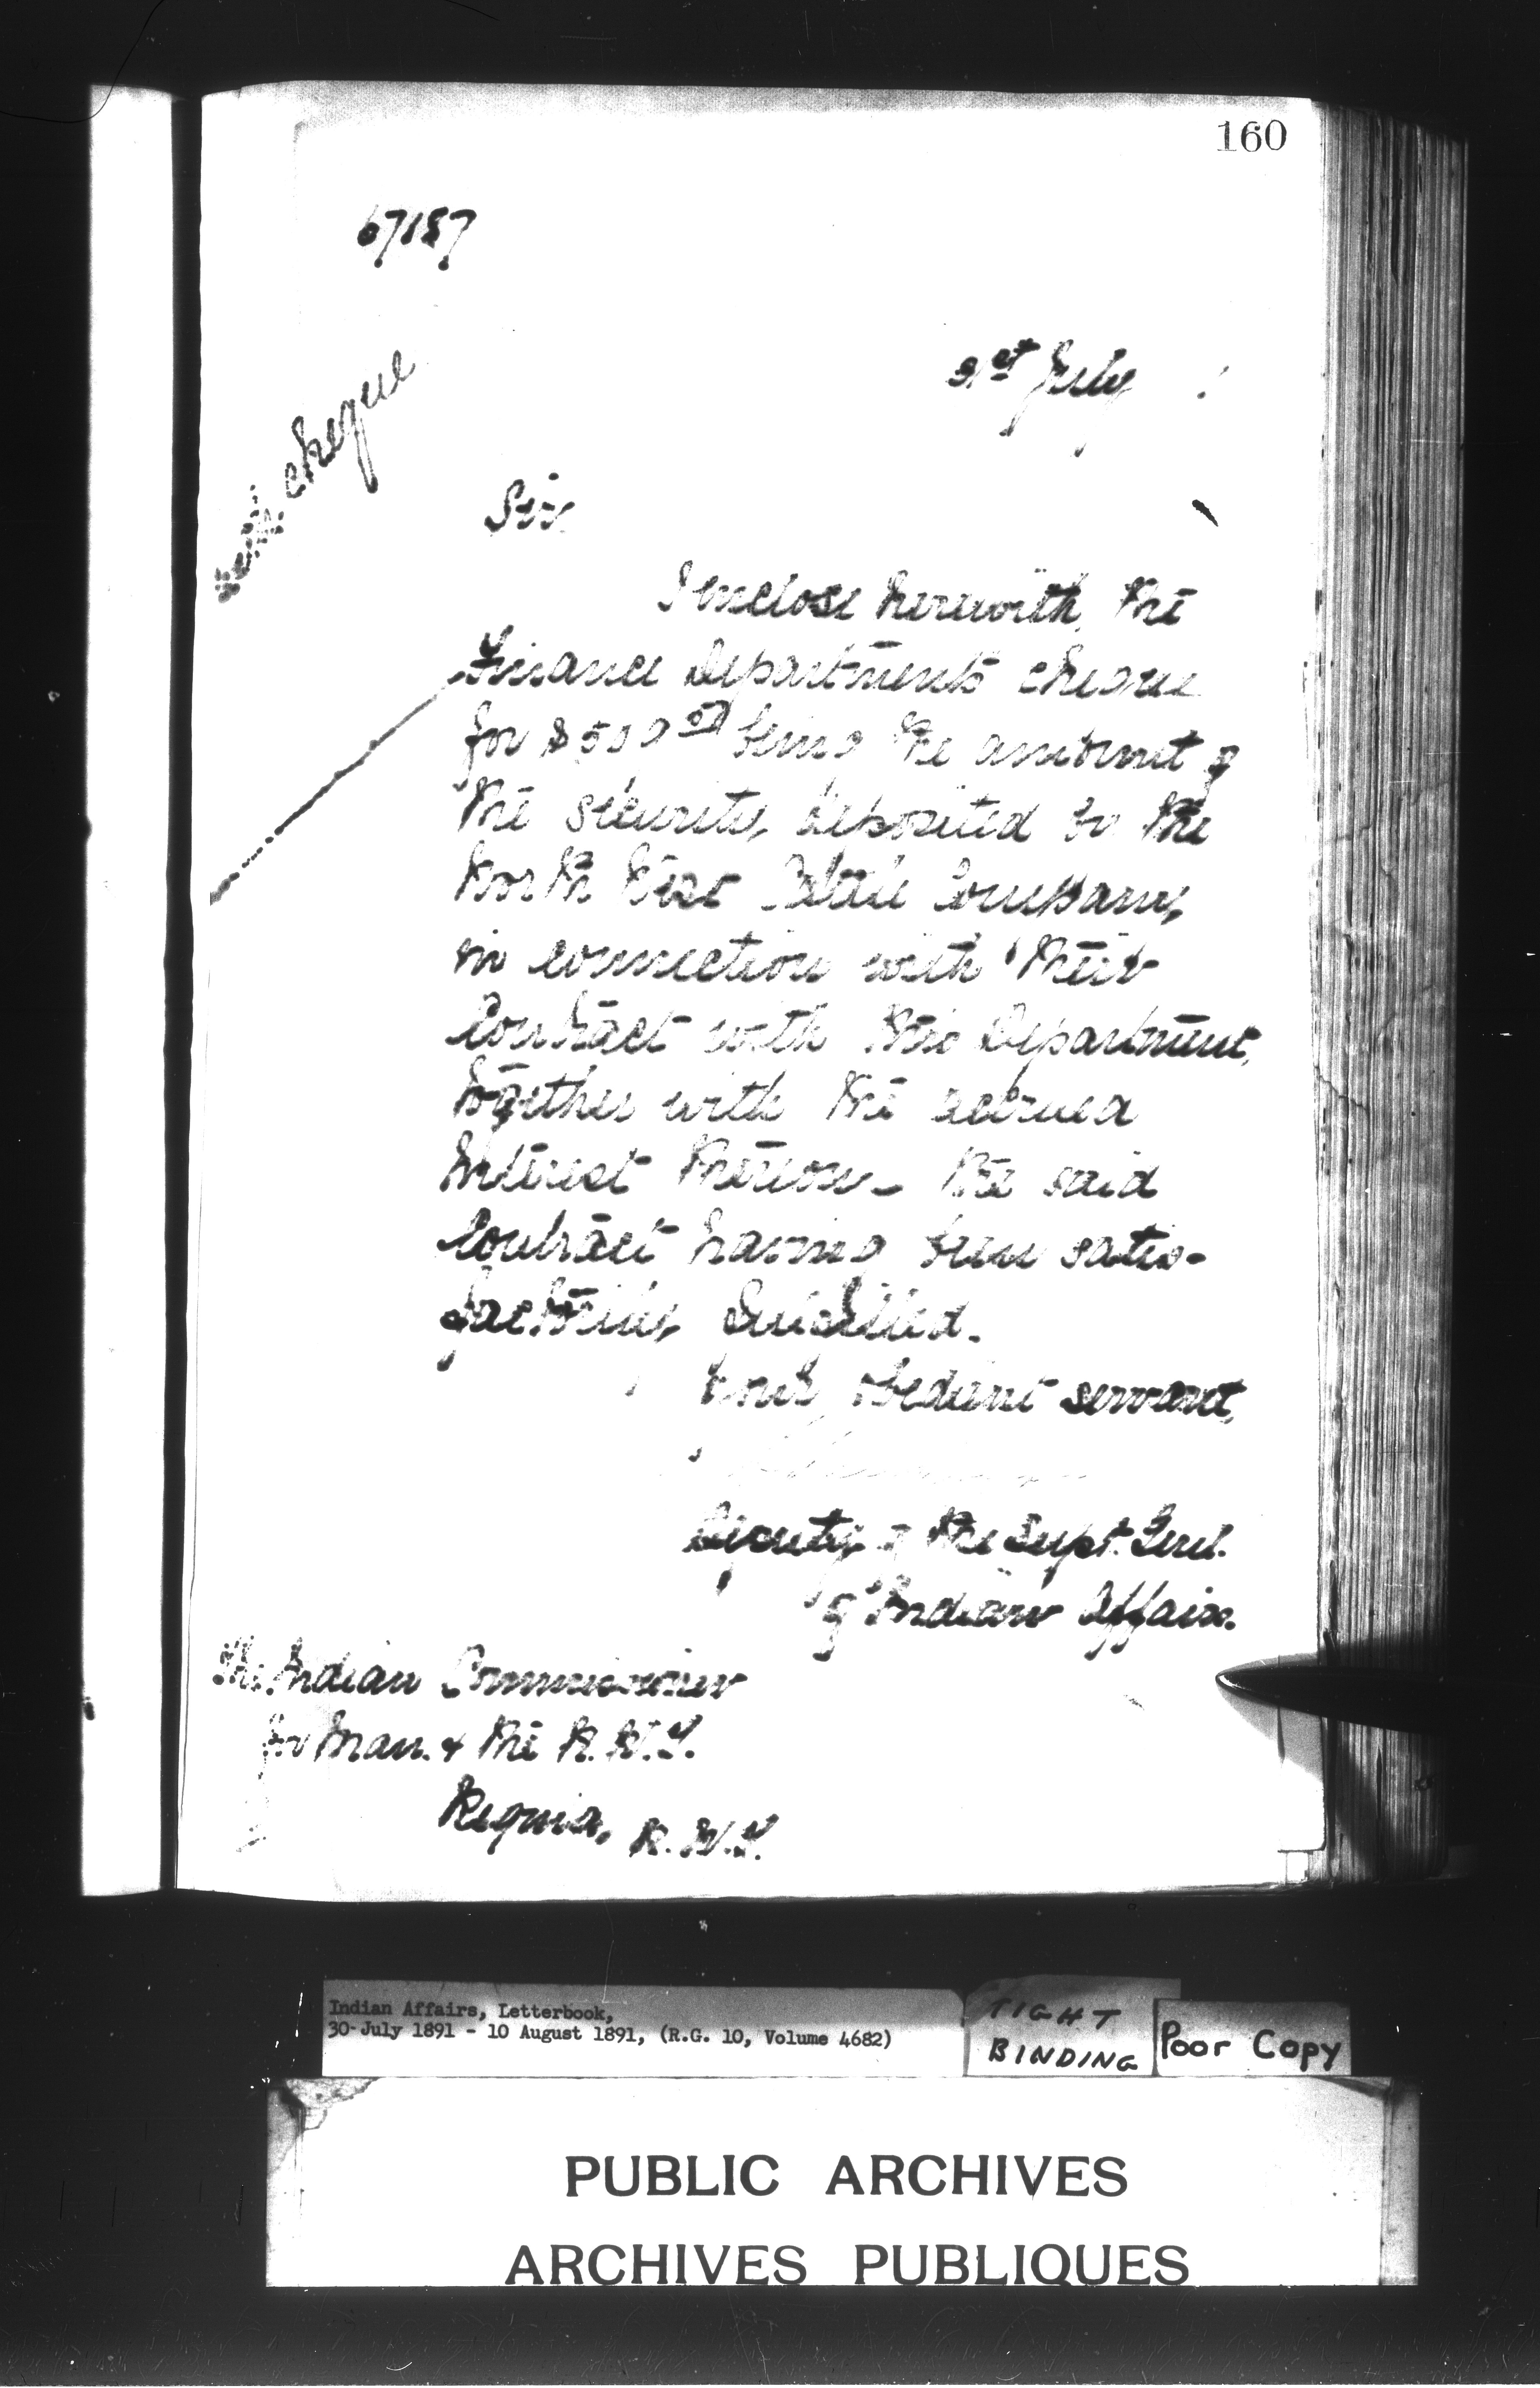 160
67187
31st July
cheque
Sir
I enclose herewith, the
Finance Departments cheque
for $500 being the amount of
the security, deposited by the
North West Cattle Company,
in connection with their
Contract with this Department,
together with the accrued
interest thereon - the said
Contract having been satis-
factorily fulfilled.
Your obedient servant,
Deputy of the Supt. Genl.
of Indian Affairs.
The Indian Commissioner
for Man. & the N.W.T.
Regina, N.W.T.
Indian Affairs, Letterbook,
30-July 1891 - 10 August 1891, (R.G. 10, Volume 4682)
TIGHT
BINDING
Poor Copy
PUBLIC ARCHIVES
ARCHIVES PUBLIQUES